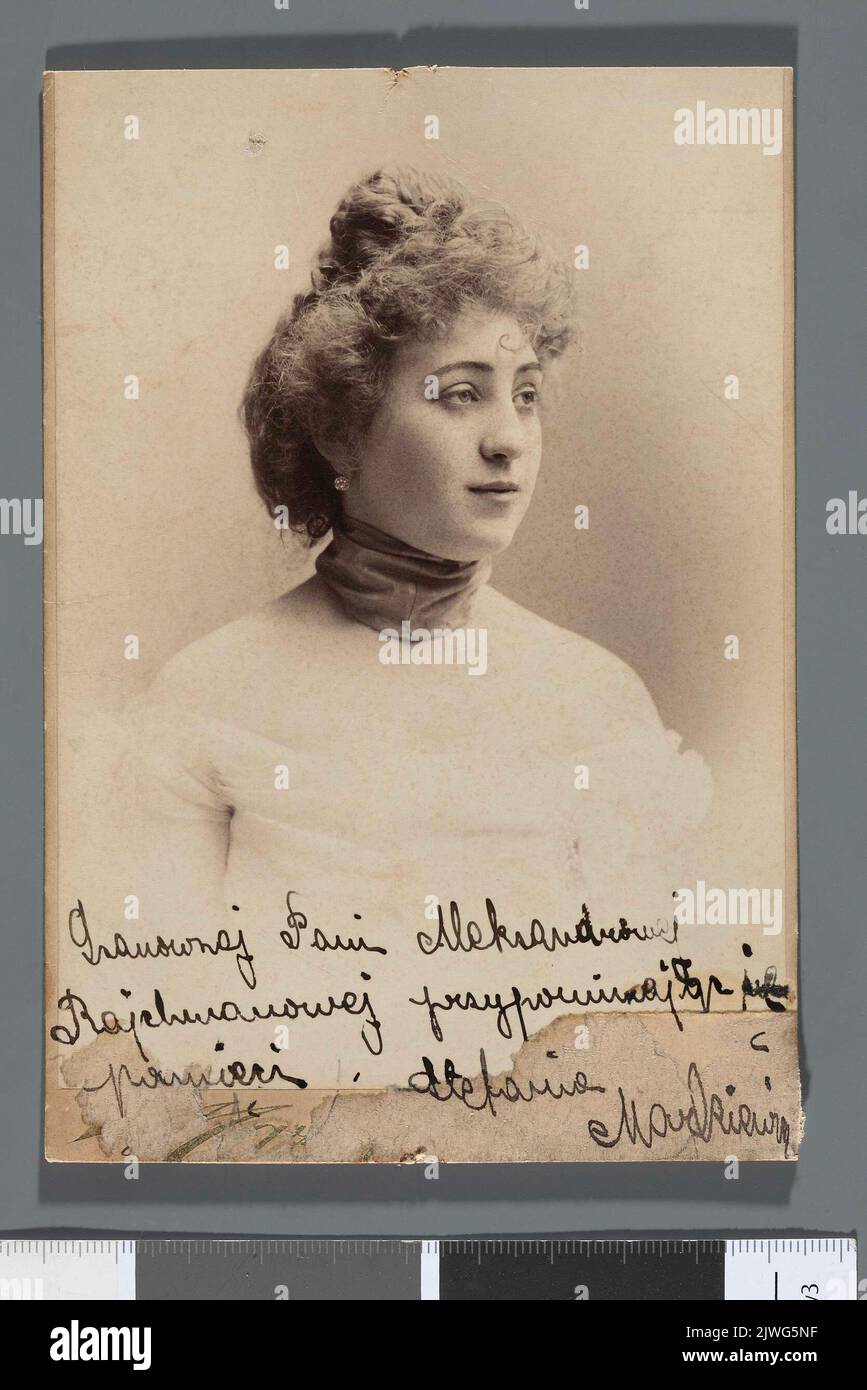 Szanownej Pani Aleksandrowej
Rajchmanowej przypominając się
pamięci . Stefania
Markiewicz
alamy
Image ID: 2JWG5NF
www.alamy.com